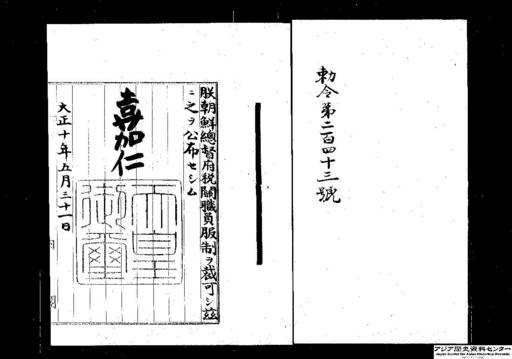 勅令第二百四十三號
朕朝鮮總督府税關職員服制ヲ裁可シ茲
ニ之ヲ公布セシム
嘉仁
天皇御璽
大正十年五月三十一日
内閣
アジア歴史資料センター
Japan Center for Asian Historical Records